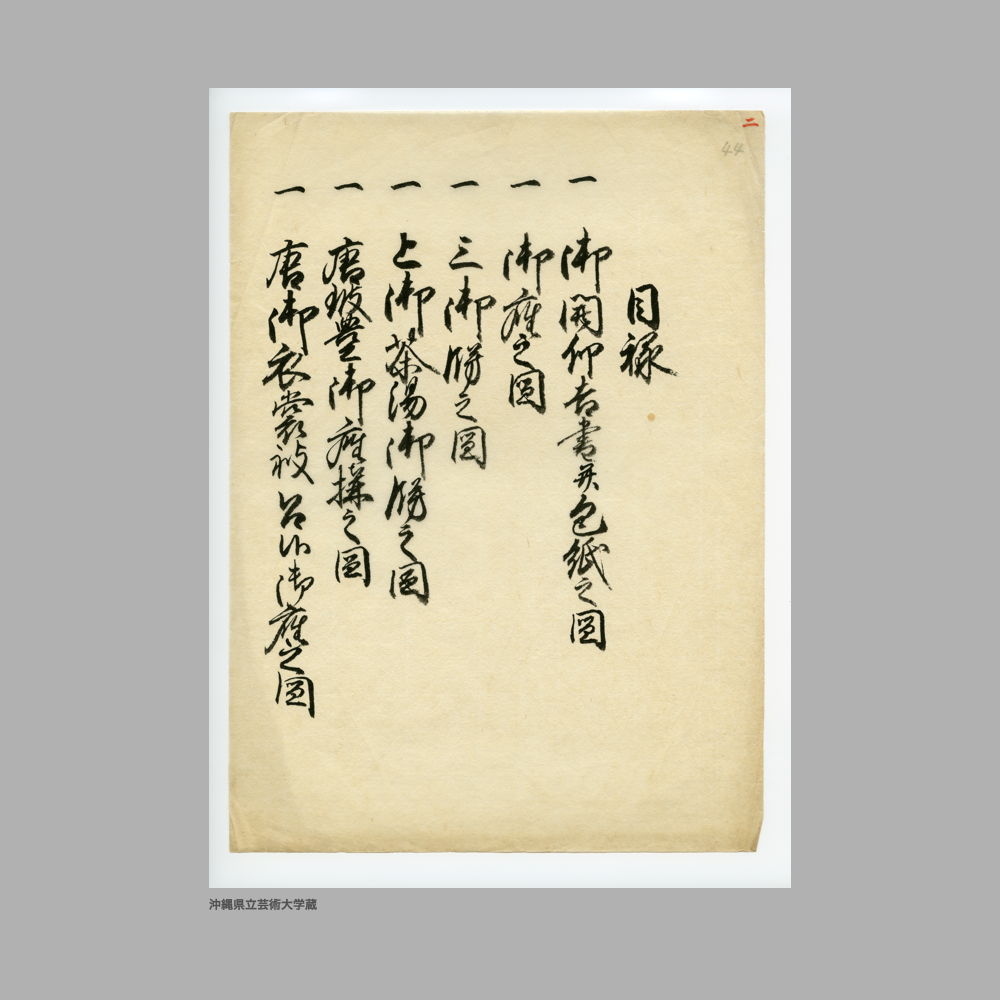 二
44
目禄
一 御開仰吉書并色紙之圖
一 御座之圖
一 三御餝之圖
一 上御茶湯御餝之圖
一 唐玻豊御座構之圖
一 唐御衣裳被召候御座之圖
沖縄県立芸術大学蔵